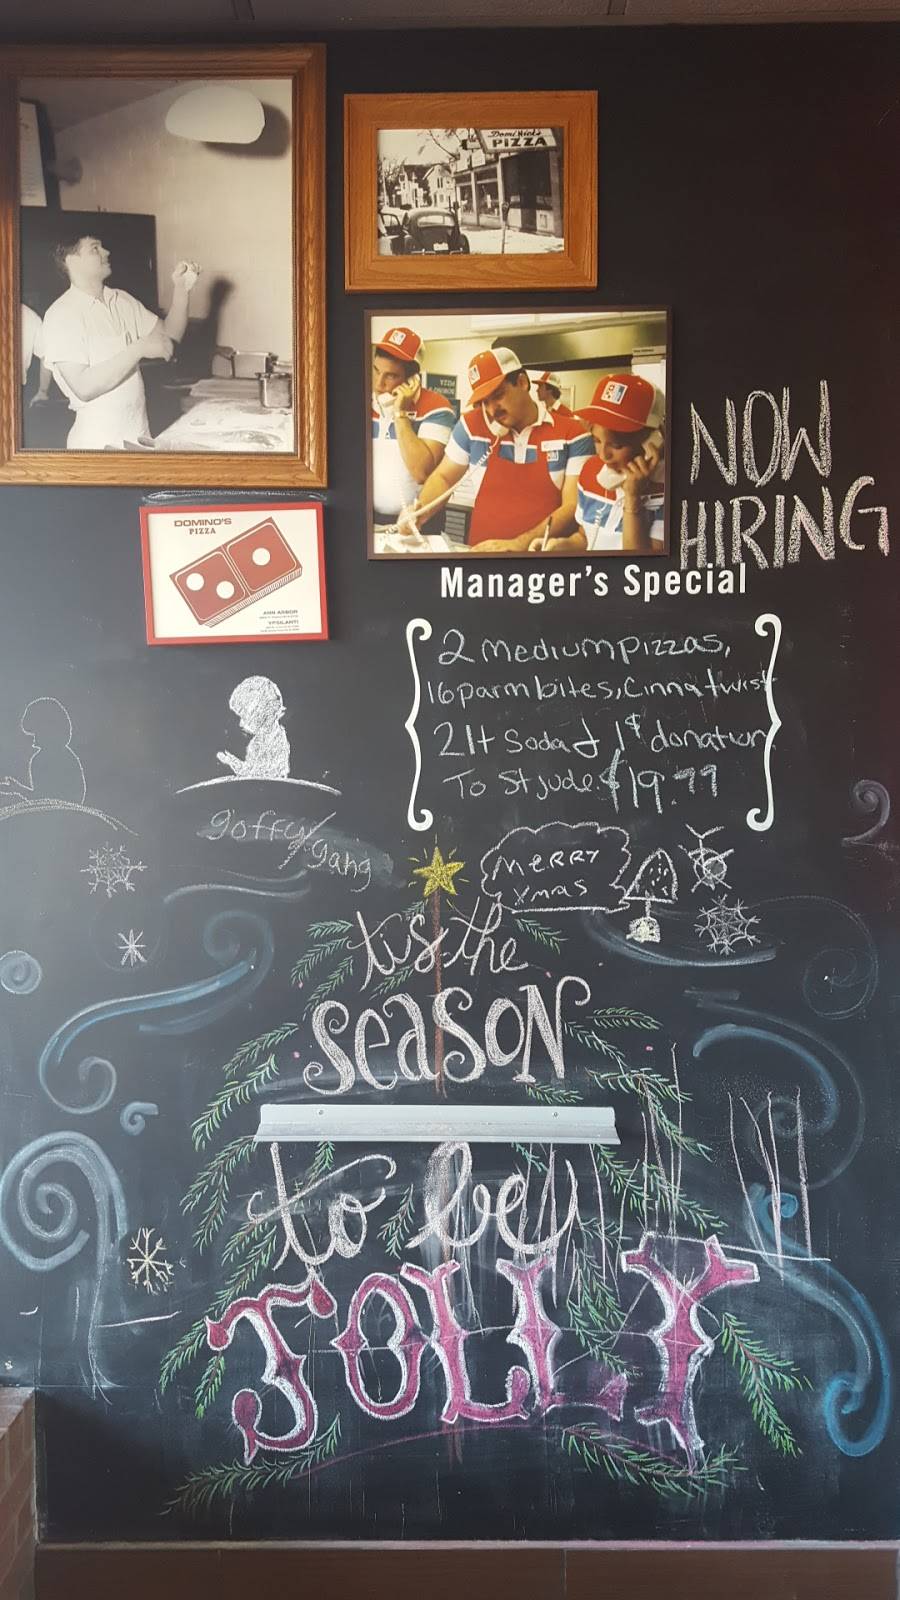 DomiNick's
PIZZA
DOMINO'S
PIZZA
ANN ARBOR
YPSILANTI
NOW
HIRING
Manager's Special
2 medium pizzas,
16 parm bites, Cinna twist
2 lt soda & 1$ donation
To St Jude $19.99
goffy/gang
MERRY
Xmas
'tis the
SEASON
to be
JOLLY